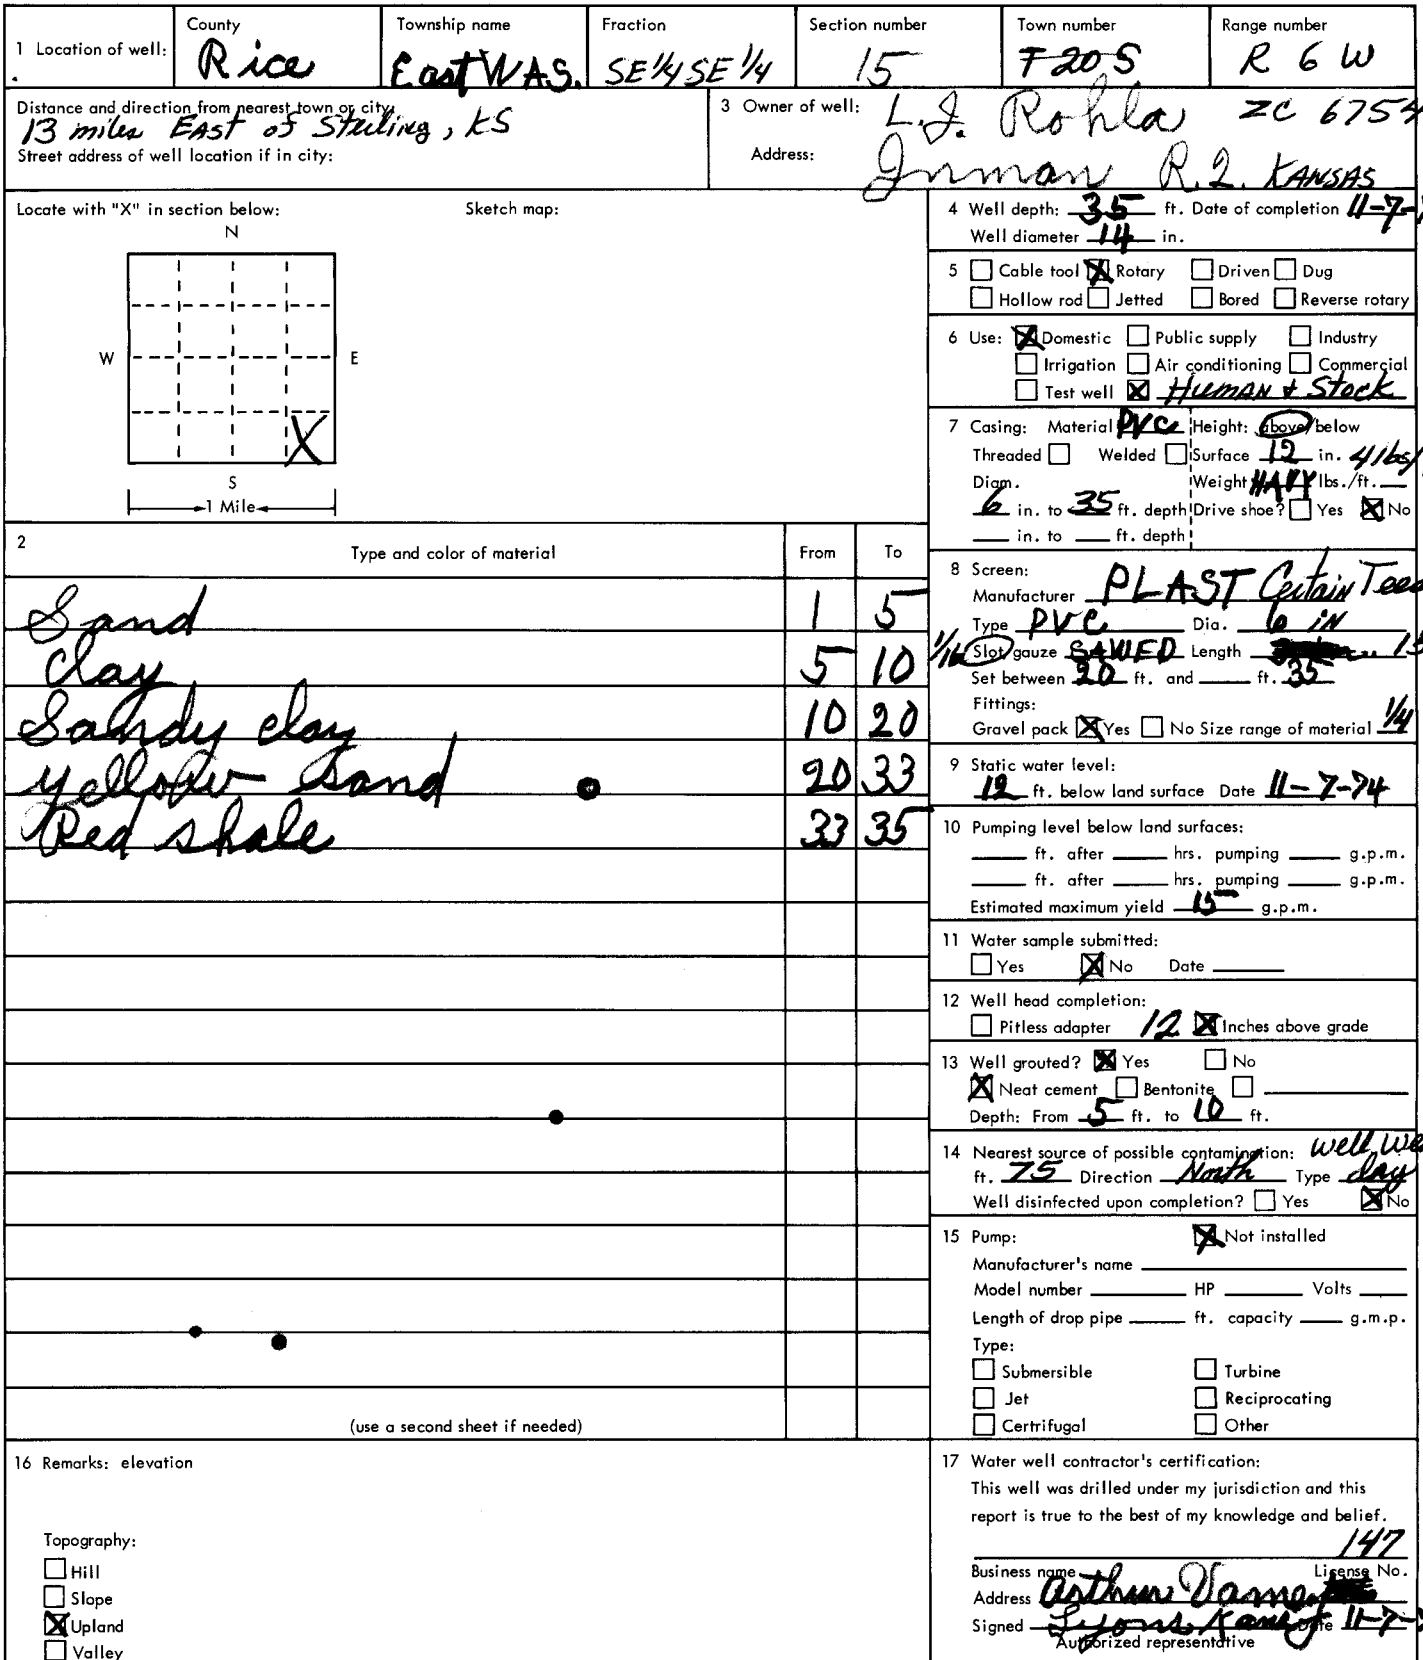 1 Location of well: County Rice Township name East WAS. Fraction SE 1/4 SE 1/4 Section number 15 Town number T 20 S Range number R 6 W
Distance and direction from nearest town or city:
13 miles EAST of Sterling, KS
Street address of well location if in city:
3 Owner of well: L.J. Rohla ZC 6754
Address: Inman R.2. KANSAS
Locate with "X" in section below: Sketch map:
N
W E
X
S
1 Mile
2 Type and color of material From To
Sand 1 5
Clay 5 10
Sandy clay 10 20
yellow sand 20 33
Red shale 33 35
(use a second sheet if needed)
4 Well depth: 35 ft. Date of completion 11-7-
Well diameter 14 in.
5 Cable tool X Rotary Driven Dug
Hollow rod Jetted Bored Reverse rotary
6 Use: X Domestic Public supply Industry
Irrigation Air conditioning Commercial
Test well X HUMAN & Stock
7 Casing: Material PVC Height: above/below
Threaded Welded Surface 12 in. 4 lbs/
Diam. Weight HAVY lbs./ft.
6 in. to 35 ft. depth Drive shoe? Yes X No
in. to ft. depth
8 Screen:
Manufacturer PLAST Certain Teed
Type PVC Dia. 6 IN
1/16 Slot/gauze SAWED Length 15
Set between 20 ft. and ft. 35
Fittings:
Gravel pack X Yes No Size range of material 1/4
9 Static water level:
12 ft. below land surface Date 11-7-74
10 Pumping level below land surfaces:
ft. after hrs. pumping g.p.m.
ft. after hrs. pumping g.p.m.
Estimated maximum yield 15 g.p.m.
11 Water sample submitted:
Yes X No Date
12 Well head completion:
Pitless adapter 12 X Inches above grade
13 Well grouted? X Yes No
X Neat cement Bentonite
Depth: From 5 ft. to 10 ft.
14 Nearest source of possible contamination: well
ft. 75 Direction North Type clay
Well disinfected upon completion? Yes X No
15 Pump: X Not installed
Manufacturer's name
Model number HP Volts
Length of drop pipe ft. capacity g.m.p.
Type:
Submersible Turbine
Jet Reciprocating
Certrifugal Other
16 Remarks: elevation
Topography:
Hill
Slope
X Upland
Valley
17 Water well contractor's certification:
This well was drilled under my jurisdiction and this
report is true to the best of my knowledge and belief.
147
Business name License No.
Address Arthur
Signed Lyons Date 11-7-
Authorized representative